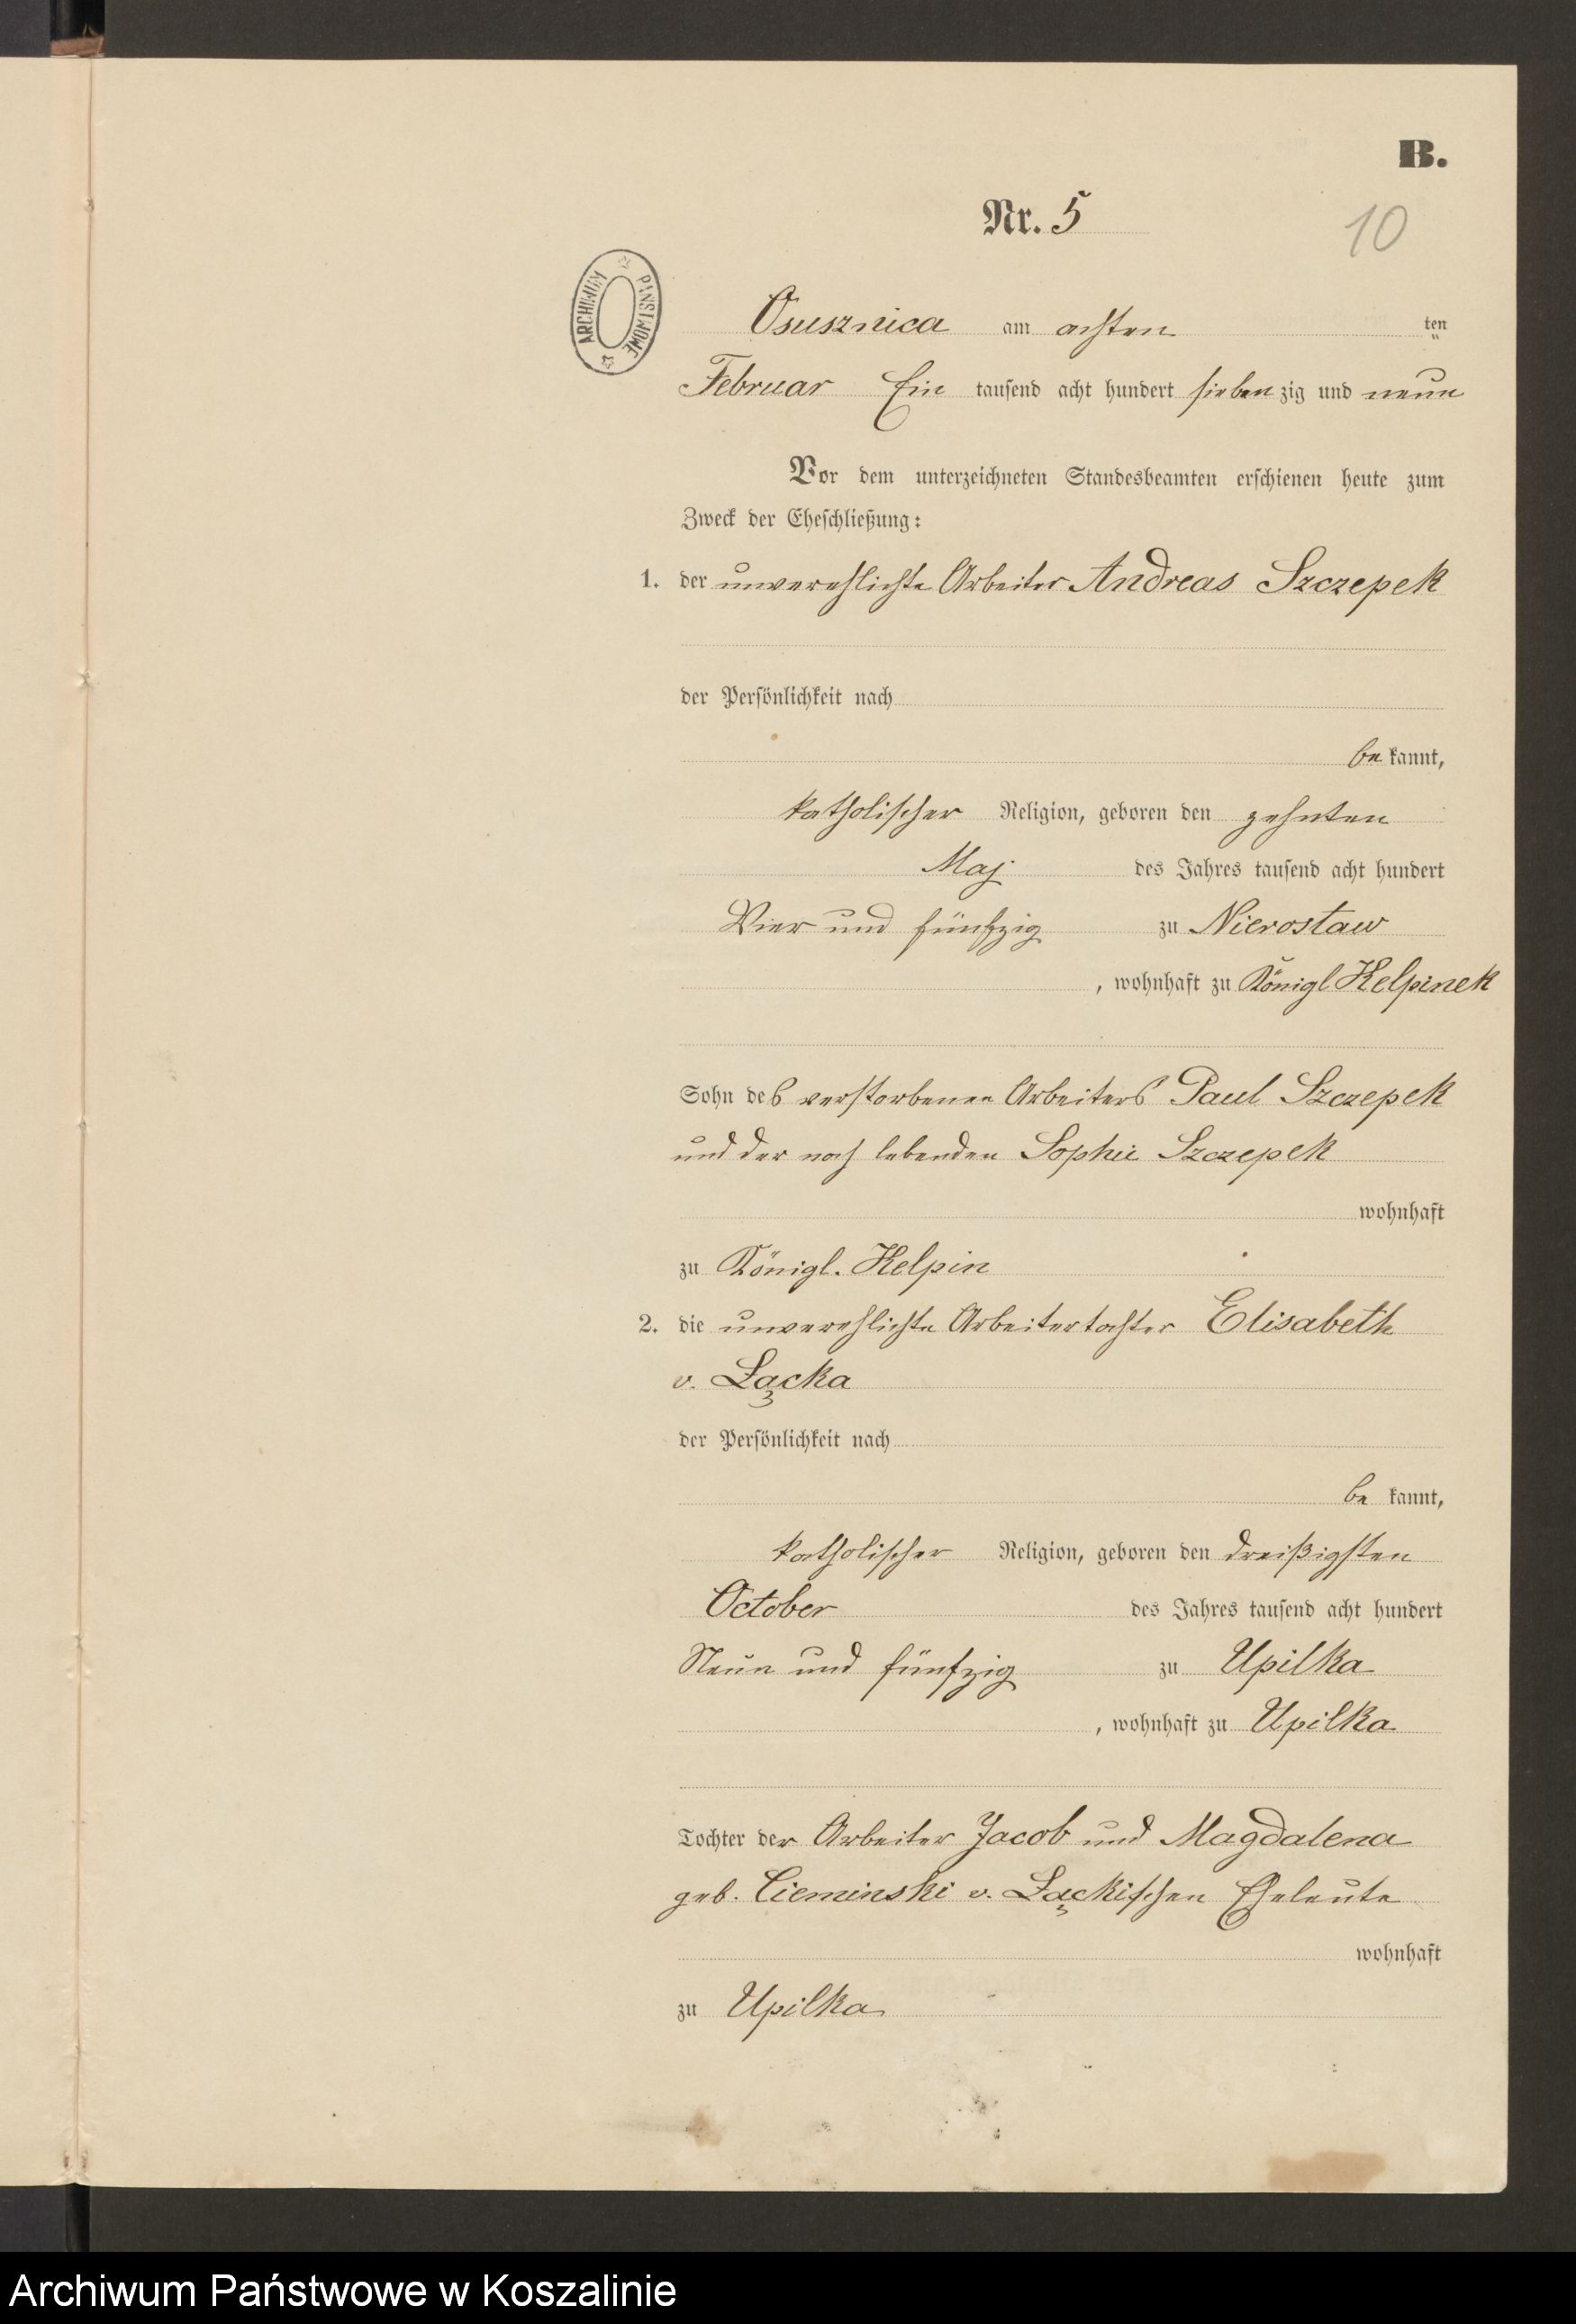 B.
Nr. 5
10
ARCHIWUM PAŃSTWOWE
Osusznica am achten ten
Februar Ein tausend acht hundert sieben zig und neun
Vor dem unterzeichneten Standesbeamten erschienen heute zum
Zweck der Eheschließung:
1. der unverehlichte Arbeiter Andreas Szczepek
der Persönlichkeit nach
be kannt,
katholischer Religion, geboren den zehnten
Maj des Jahres tausend acht hundert
Vier und fünfzig zu Nierostaw
, wohnhaft zu Königl Kelpinek
Sohn des verstorbenen Arbeiters Paul Szczepek
und der noch lebenden Sophie Szczepek
wohnhaft
zu Königl. Kelpin
2. die unverehlichte Arbeitertochter Elisabeth
v. Łącka
der Persönlichkeit nach
be kannt,
katholischer Religion, geboren den dreißigsten
October des Jahres tausend acht hundert
Neun und fünfzig zu Upilka
, wohnhaft zu Upilka
Tochter der Arbeiter Jacob und Magdalena
geb. Cieminski v. Łąckischen Eheleute
wohnhaft
zu Upilka
Archiwum Państwowe w Koszalinie